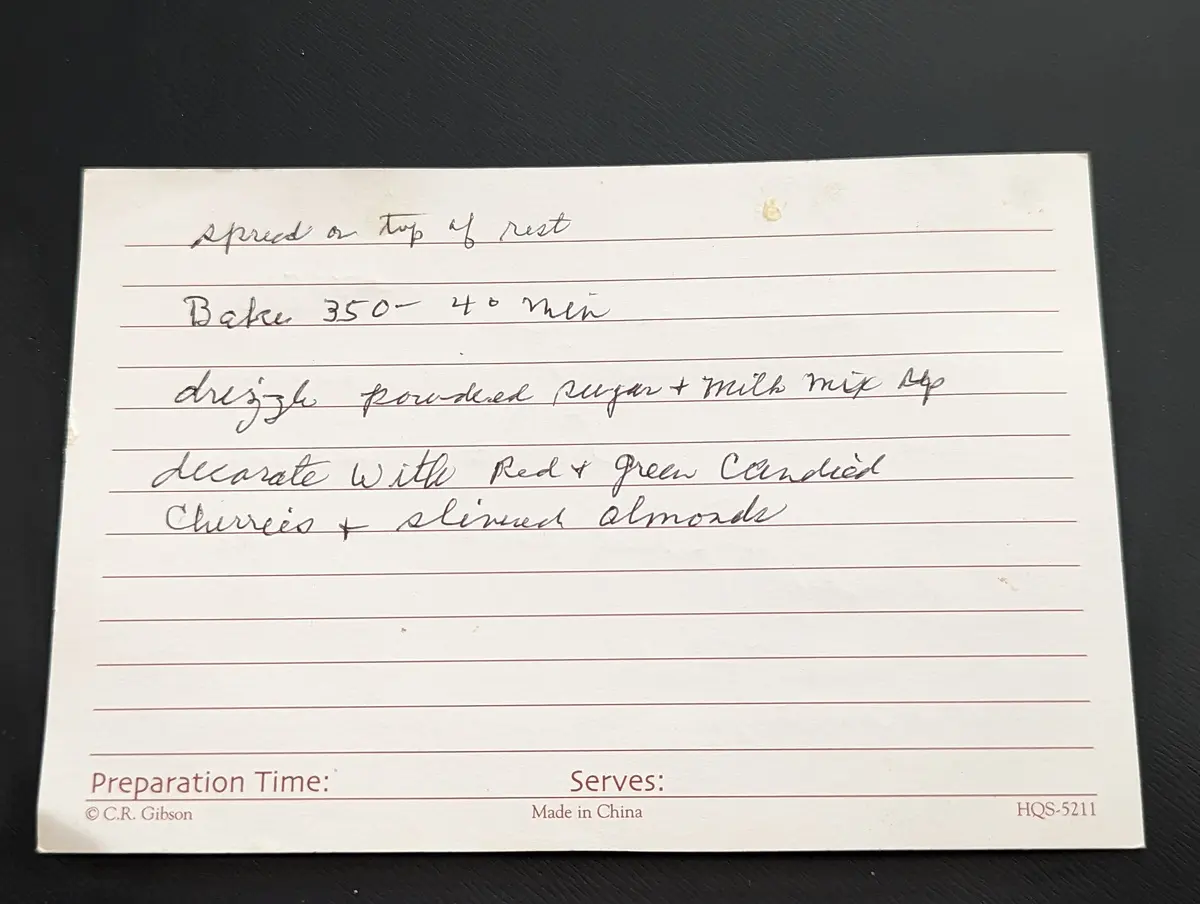 spread on top of rest
Bake 350- 40 min
drizzle powdered sugar + milk mix
decorate with Red + green Candied
Cherries + slivered almonds
Preparation Time: Serves:
© C.R. Gibson Made in China HQS-5211